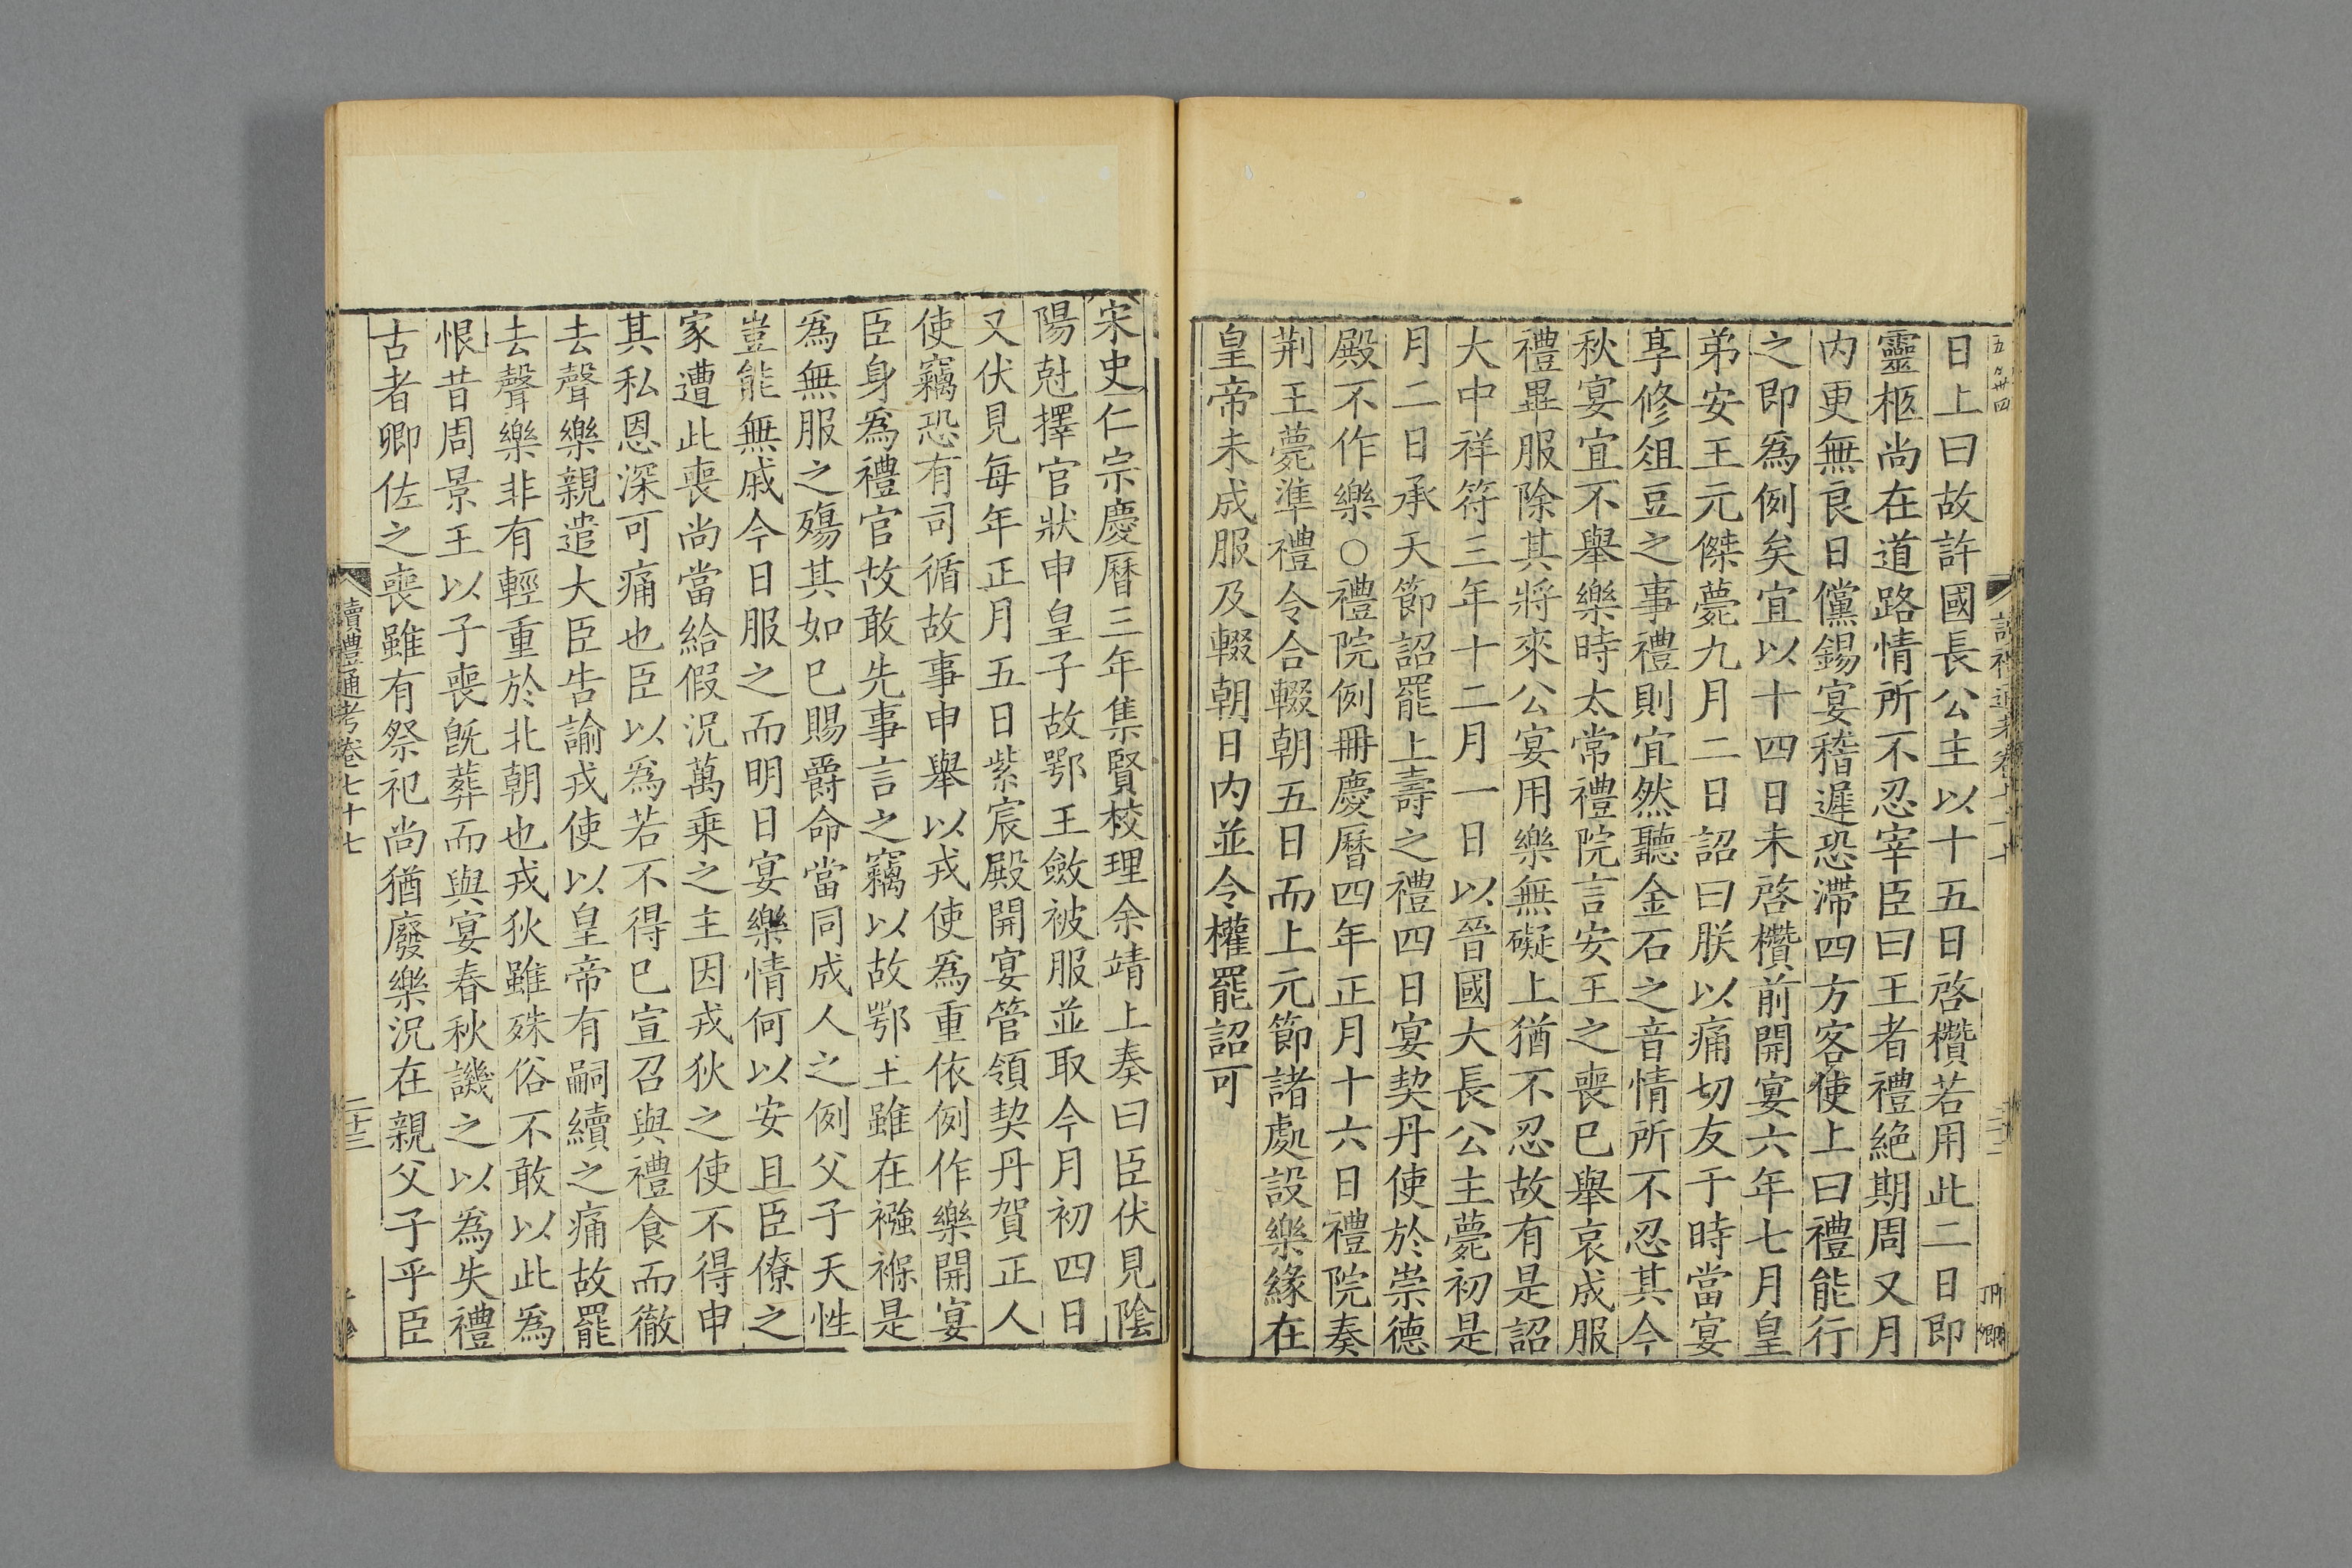 日上曰故許國長公主以十五日啓欑若用此二日即
靈柩尚在道路情所不忍宰臣曰王者禮絶期周又月
内更無良日儻錫宴稽遲恐滯四方客使上曰禮能行
之即爲例矣宜以十四日未啓欑前開宴六年七月皇
弟安王元傑薨九月二日詔曰朕以痛切友于時當宴
享修俎豆之事禮則宜然聽金石之音情所不忍其今
秋宴宜不舉樂時太常禮院言安王之喪已舉哀成服
禮畢服除其將來公宴用樂無礙上猶不忍故有是詔
大中祥符三年十二月一日以晉國大長公主薨初是
月二日承天節詔罷上壽之禮四日宴契丹使於崇德
殿不作樂○禮院例冊慶曆四年正月十六日禮院奏
荆王薨準禮令合輟朝五日而上元節諸處設樂緣在
皇帝未成服及輟朝日内並令權罷詔可
宋史仁宗慶曆三年集賢校理余靖上奏曰臣伏見陰
陽尅擇官狀申皇子故鄂王斂被服並取今月初四日
又伏見每年正月五日紫宸殿開宴管領契丹賀正人
使竊恐有司循故事申舉以戎使爲重依例作樂開宴
臣身爲禮官故敢先事言之竊以故鄂王雖在襁褓是
爲無服之殤其如已賜爵命當同成人之例父子天性
豈能無戚今日服之而明日宴樂情何以安且臣僚之
家遭此喪尚當給假況萬乗之主因戎狄之使不得申
其私恩深可痛也臣以爲若不得已宣召與禮食而徹
去聲樂親遣大臣告諭戎使以皇帝有嗣續之痛故罷
去聲樂非有輕重於北朝也戎狄雖殊俗不敢以此爲
恨昔周景王以子喪旣葬而與宴春秋譏之以爲失禮
古者卿佐之喪雖有祭祀尚猶廢樂況在親父子乎臣
讀禮通考卷七十七
二十三